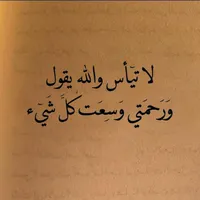 لا تيٓأس والله يقول
وَرَحمَتي وَسِعَت كُلَّ شَيٓء